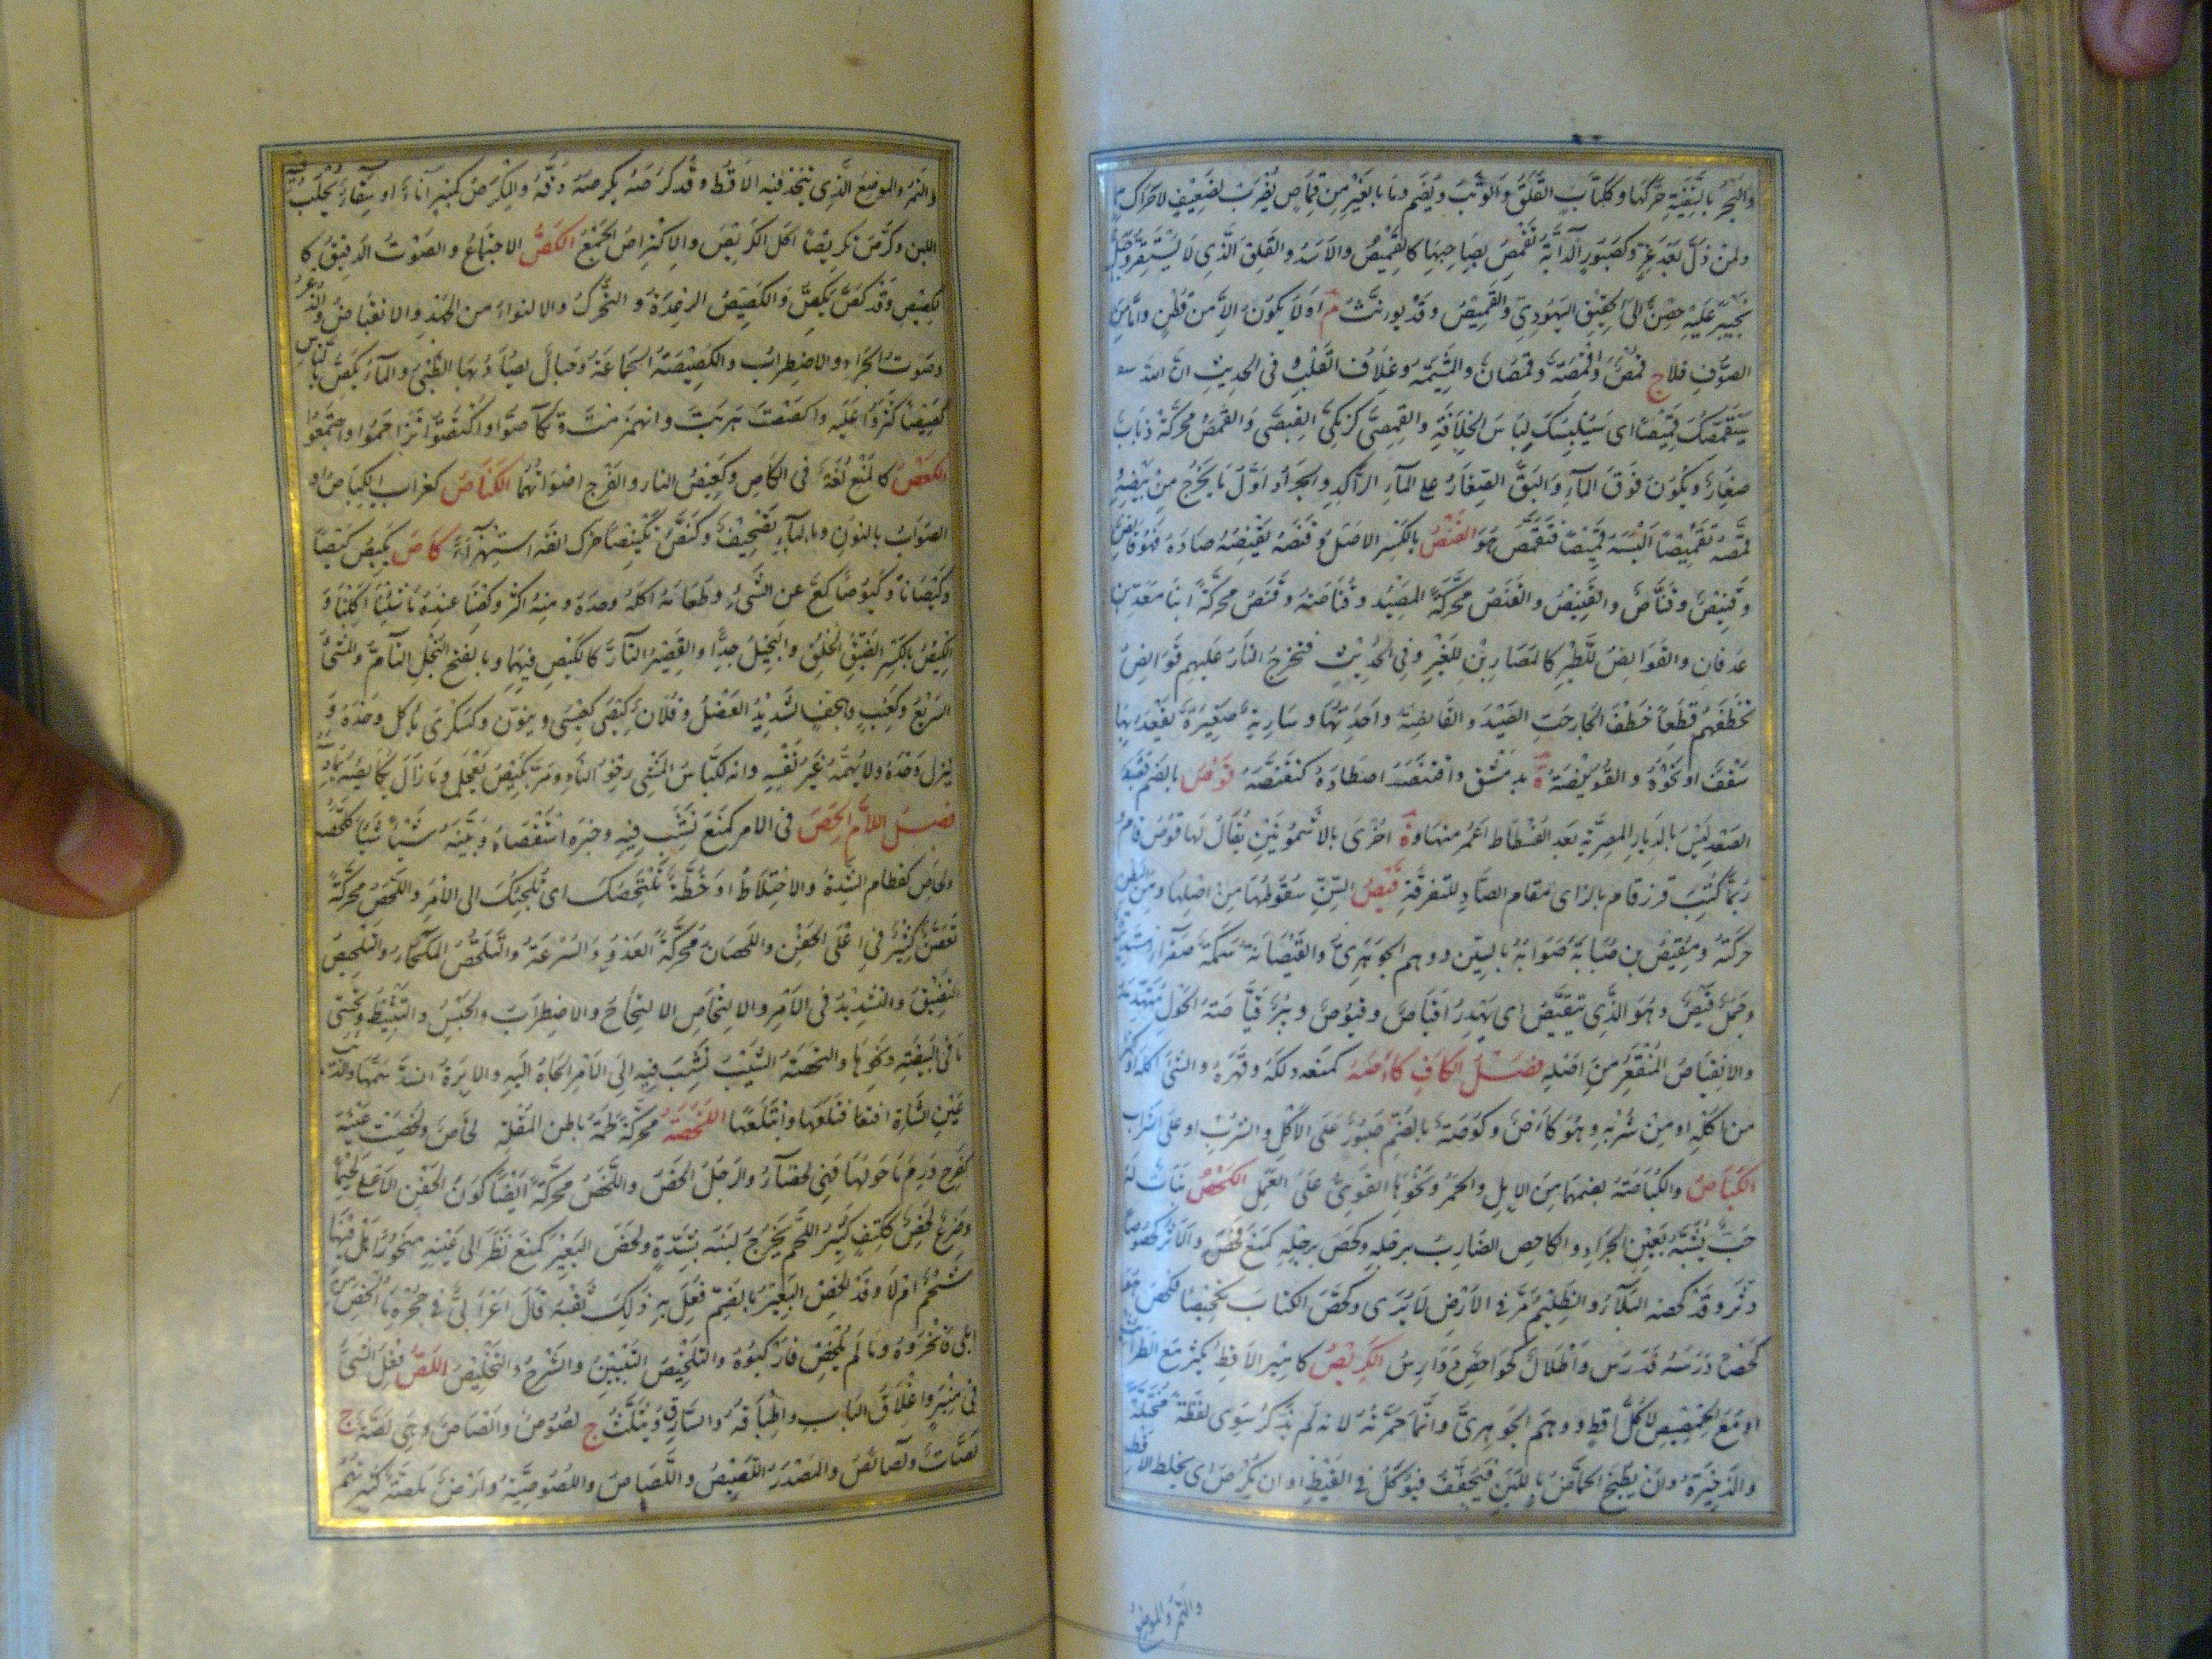 والبحر بالسفينة حركها وككتاب القلق والوثب ويضم وما بالعير من قماص يضرب لضعيف لا حراك به
ولمن ذل بعد عز وكصبور الدابة تقمص بصاحبها كالقميص والاسد والقلق الذي لا يستقر وجبل
بخيبر عليه حصن ابي الحقيق اليهودي والقميص وقد يؤنث م او لا يكون الا من قطن واما من
الصوف فلا ج قمص واقمصة وقمصان والمشيمة وغلاف القلب وفي الحديث ان الله
سيقمصك قميصا اي سيلبسك لباس الخلافة والقمصى كزمكى القبصى والقمص محركة ذباب
صغار ويكون فوق الماء والبق الصغار على الماء الراكد والجراد اول ما يخرج من بيضه
قمصه تقميصا البسه قميصا فتقمص هو القنص بالكسر الاصل وقنصه يقنصه صاده فهو قانص
وقنيص وقناص والقنيص والقنص محركة المصيد وقناصة وقنص محركة ابنا معد بن
عدنان والقوانص للطير كالمصارين للغير وفي الحديث فتخرج النار عليهم قوانص
تخطفهم قطعا خطف الجارحة الصيد والقانصة واحدتها وسارية صغيرة تعقد بها
سقف او نحوه والقوينصة ة بدمشق واقتنصه اصطاده كتقنصه قوص بالضم قصبة
الصعيد ليس بالديار المصرية بعد الفسطاط اعمر منها وة اخرى بالاشمونين يقال لها قوص قام
ربما كتبت قوز قام بالزاي مقام الصاد للتفرقة قيص السن سقوطها من اصلها ومن البطن
حركته ومقيص بن صبابة صوابه بالسين ووهم الجوهري والقيصانة سمكة صفراء مستديرة
وجمل قيص وهو الذي يتقيص اي يهدر اقياص وقيوص وبئر قياصة الجول متهدمته
والانقياص المنقعر من اصله فصل الكاف كأصه كمنعه دلكه وقهره والشيء اكله او اكثر
من اكله او من شربه وهو كأص وكؤصة بالضم صبور على الاكل والشرب او على الشراب
الكباص والكباصة بضمهما من الابل والحمر ونحوها القوي على العمل الكحص نبات له
حب يشبه بعين الجراد والكاحص الضارب برجله وكحص برجله كمنع فحص والاثر كحوصا
دثر وقد كحصه البلى والظليم مر في الارض لا يرى وكحص الكتاب تكحيصا فكحص هو
كحصا درسه فدرس واطلال كواحص دوارس الكريص كامير الاقط يكنز مع الطراثيث
او مع الحمصيص لا كل اقط ووهم الجوهري وانما حمرته لانه لم يذكر سوى لفظة مختلة
والذخيرة وان يطبخ الحماض باللبن فيجفف فيؤكل في القيظ او ان يكرص اي يخلط الاقط
والتمر والموضع
والتمر والموضع الذي يتخذ فيه الاقط وقد كرصه يكرصه دقه والمكرص كمنبر اناء او سقاء يحلب فيه
اللبن وكرص تكريصا اكل الكريص والاكتراص الجمع الكص الاجتماع والصوت الدقيق كا
لكصيص وقد كص يكص والكصيص الرعدة والتحرك والالتواء من الجهد والانقباض والذعر
وصوت الجراد والاضطراب والكصيصة الجماعة وحبالة يصاد بها الظبي والماء يكص بالناس
كصيصا كثروا عليه واكصصت هربت وانهزمت وتكاصوا واكتصوا تزاحموا واجتمعوا
الكعص كالمنع لغة في الكأص وكعيص الفار والفرخ اصواتهما الكناص كغراب الكباص او
الصواب بالنون وبالباء تصحيف وكنص تكنيصا حرك انفه استهزاء كاص يكيص كيصا
وكيصانا وكيوصا كع عن الشيء وطعامه اكله وحده ومنه اكثر وكصنا عنده ما شئنا اكلنا و
الكيص بالكسر الضيق الخلق والبخيل جدا والقصير التار كالكيص فيهما وبالفتح البخل التام والمشي
السريع وكعنب وهجف الشديد العضل وفلان كيصى كعيسى وينون وكسكرى ياكل وحده و
ينزل وحده ولا يهمه غير نفسه وانه لكياص المشي رخو الباد ومر يكيص يعجل وما زال يكايصه يمارسه
فصل اللام لحص في الامر كمنع نشب فيه وخبره استقصاه وبينه شيئا شيئا كلحصه
ولحاص كقطام الشدة والاختلاط او خطة تلتحصك اي تلجئك الى الامر واللحص محركة
تغضن كثير في اعلى الجفن واللحصان محركة العدو والسرعة والتلحص المكمحل والتلحيص
التضييق والتشديد في الامر والالتحاص الالتحاج والاضطراب والحبس والتثبيط وتحسي
ما في البيضة ونحوها والتحصه الشيء نشب فيه الى الامر الجأه اليه والابرة انسد سمها والذئب
عين الشاة اقتلعها وابتلعها اللخصة محركة لحمة باطن المقلة لخاص ولخصت عينه
كفرح ورم ما حولها فهي لخصاء والرجل الخص واللخص محركة ايضا كون الجفن الاعلى لحيما
وضرع لخص ككتف كثير اللحم يخرج لبنه بشدة ولخص البعير كمنع نظر الى عينه منحورا هل فيها
شحم ام لا وقد لخص البعير بالضم فعل به ذلك فنقيه قال اعرابي في حجرة ما الخص من
ابلي فانحروه وما لم يلخص فاركبوه والتلخيص التبيين والشرح والتخليص اللص فعل الشيء
في ستر واغلاق الباب واطباقه والسارق ويثلث ج لصوص والصاص وهي لصة ج
لصات ولصائص والمصدر اللصص واللصاص واللصوصية وارض ملصة كثيرتهم